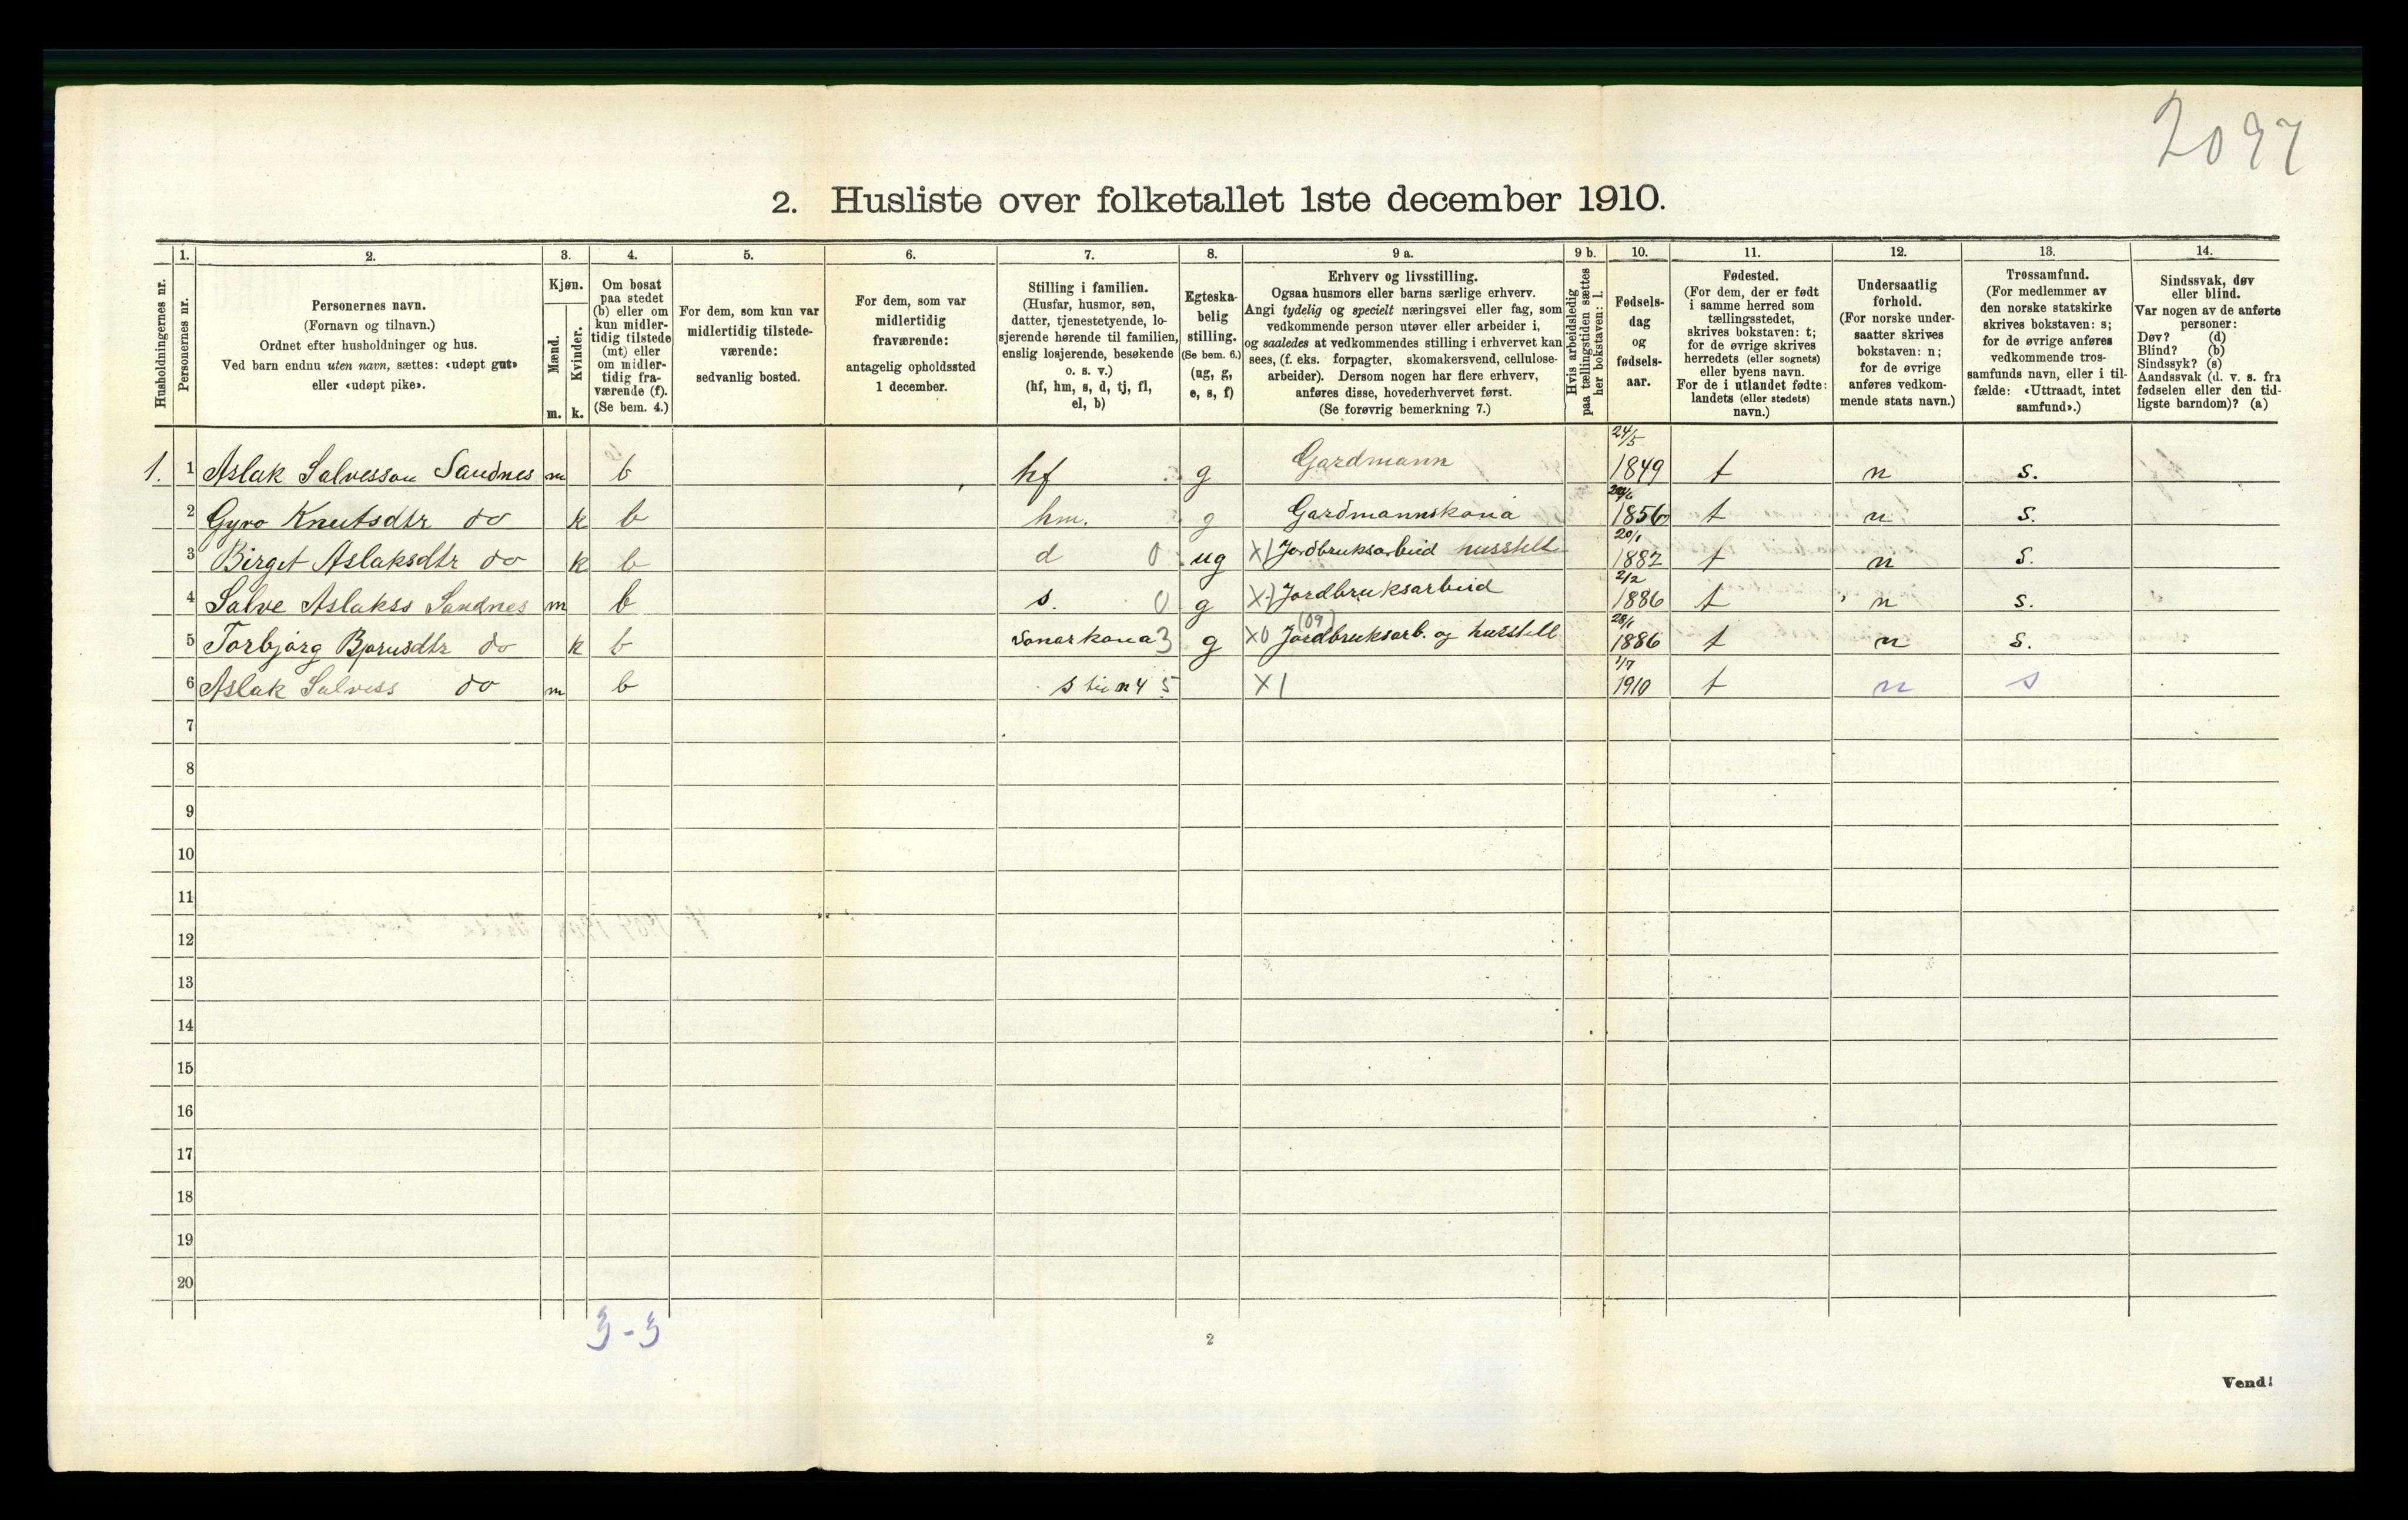 2097
2. Husliste over folketallet 1ste december 1910.
Husholdningernes nr.
1.
Personernes nr.
2.
Personernes navn.
(Fornavn og tilnavn.)
Ordnet efter husholdninger og hus.
Ved barn endnu uten navn, sættes: «udøpt gut»
eller «udøpt pike».
3.
Kjøn.
Mænd.
Kvinder.
m.
k.
4.
Om bosat
paa stedet
(b) eller om
kun midler-
tidig tilstede
(mt) eller
om midler-
tidig fra-
værende (f).
(Se bem. 4.)
5.
For dem, som kun var
midlertidig tilstede-
værende:
sedvanlig bosted.
6.
For dem, som var
midlertidig
fraværende:
antagelig opholdssted
1 december.
7.
Stilling i familien.
(Husfar, husmor, søn,
datter, tjenestetyende, lo-
sjerende hørende til familien,
enslig losjerende, besøkende
o. s. v.)
(hf, hm, s, d, tj, fl,
el, b)
8.
Egteska-
belig
stilling.
(Se bem. 6.)
(ug, g,
e, s, f)
9 a.
Erhverv og livsstilling.
Ogsaa husmors eller barns særlige erhverv.
Angi tydelig og specielt næringsvei eller fag, som
vedkommende person utøver eller arbeider i,
og saaledes at vedkommendes stilling i erhvervet kan
sees, (f. eks. forpagter, skomakersvend, cellulose-
arbeider). Dersom nogen har flere erhverv,
anføres disse, hovederhvervet først.
(Se forøvrig bemerkning 7.)
9 b.
Hvis arbeidsledig
paa tællingstiden sættes
her bokstaven: l.
10.
Fødsels-
dag
og
fødsels-
aar.
11.
Fødested.
(For dem, der er født
i samme herred som
tællingsstedet,
skrives bokstaven: t;
for de øvrige skrives
herredets (eller sognets)
eller byens navn.
For de i utlandet fødte:
landets (eller stedets)
navn.)
12.
Undersaatlig
forhold.
(For norske under-
saatter skrives
bokstaven: n;
for de øvrige
anføres vedkom-
mende stats navn.)
13.
Trossamfund.
(For medlemmer av
den norske statskirke
skrives bokstaven: s;
for de øvrige anføres
vedkommende tros-
samfunds navn, eller i til-
fælde: «Uttraadt, intet
samfund».)
14.
Sindssvak, døv
eller blind.
Var nogen av de anførte
personer:
Døv? (d)
Blind? (b)
Sindssyk? (s)
Aandssvak (d. v. s. fra
fødselen eller den tid-
ligste barndom)? (a)
1. 1 Aslak Salvesson Sandnes m b hf g Gardmann 24/5 1849 t n s.
2 Gyro Knutsdtr do k b hm. g Gardmannskona 1856 t n s.
3 Birget Aslaksdtr do k b d 0 ug X1 Jordbruksarbeid husstell 20/1 1882 t n s.
4 Salve Aslakss Sandnes m b s. 0 g X1 Jordbruksarbeid 2/2 1886 t n s.
5 Torbjørg Bjørnsdtr do k b sonarkona 3 g X0 Jordbruksarb. og husstell (09) 28/1 1886 t n s.
6 Aslak Salvess do m b s til n 4 5 X1 1/7 1910 t n s
7
8
9
10
11
12
13
14
15
16
17
18
19
20
3-3
2
Vend!